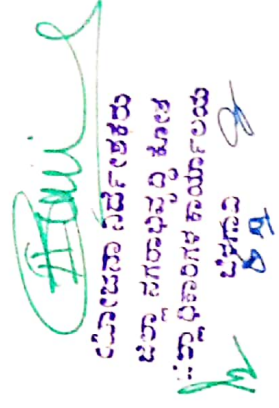 ಯೋಜನಾ ನಿರ್ದೇಶಕರು
ಜಿಲ್ಲಾ ನಗರಾಭಿವೃದ್ಧಿ ಕೋಶ
ಜಿಲ್ಲಾಧಿಕಾರಿಗಳ ಕಾರ್ಯಾಲಯ
ಬೆಳಗಾವಿ